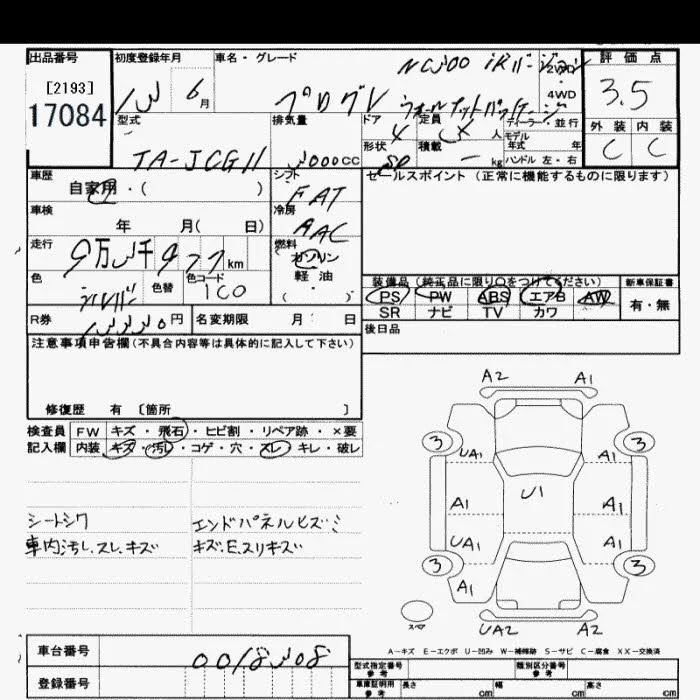 出品番号 初度登録年月 車名・グレード 評価点
[2193] NC300 iRバージョン 2WD
17084 13 6月 プログレ ウォールナットパッケージ 4WD 3.5
型式 排気量 ドア 4 定員 人 ディーラー・並行 外装 内装
形状 積載 kg モデル年式 年 C C
TA-JCG11 3000CC ハンドル 左・右
車歴 シフト セールスポイント (正常に機能するものに限ります)
自家用・( ) FAT
車検 冷房
年 月( 日) AAC
走行 9万3千977km 燃料
ガソリン
色 色替 色コード 軽油
シルバー 1C0 ( )
装備品(純正品に限り○をつけてください) 新車保証書
PS PW ABS エアB AW 有・無
SR ナビ TV カワ
R券 円 名変期限 月 日 後日品
注意事項申告欄(不具合内容等は具体的に記入して下さい)
修復歴 有 〔箇所 〕
検査員 FW キズ・飛石・ヒビ割・リペア跡・×要
記入欄 内装 キズ・汚レ・コゲ・穴・スレ・キレ・破レ
シートシワ エンドパネルヒズミ
車内汚レ.スレ.キズ キズ.E.スリキズ
A2 A1
3 3
UA1 A1
U1
A1 A1
UA1 A1
3 3
A1
スペア UA2 A2
A-キズ E-エクボ U-凹み W-補修跡 S-サビ C-腐食 XX-交換済
車台番号 0018308
登録番号
型式指定番号 参考 類別区分番号 参考
車庫証明用 参考 長さ cm 幅 cm 高さ cm